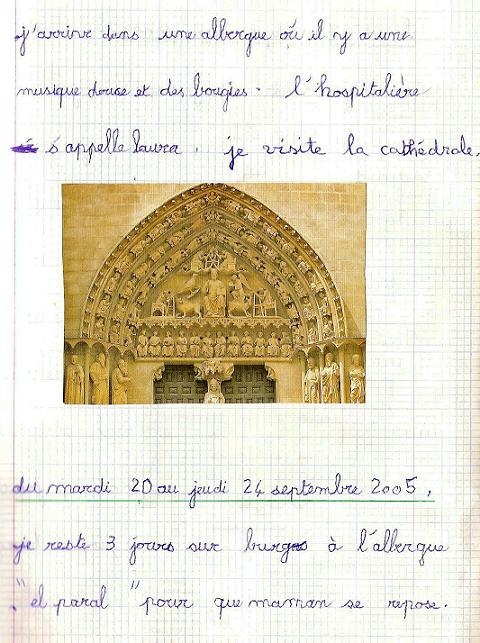 j'arrive dans une albergue où il y a une
musique douce et des bougies. l'hospitalière
s'appelle laura. je visite la cathédrale.
du mardi 20 au jeudi 24 septembre 2005,
je reste 3 jours sur burgos à l'albergue
"el paral" pour que maman se repose.